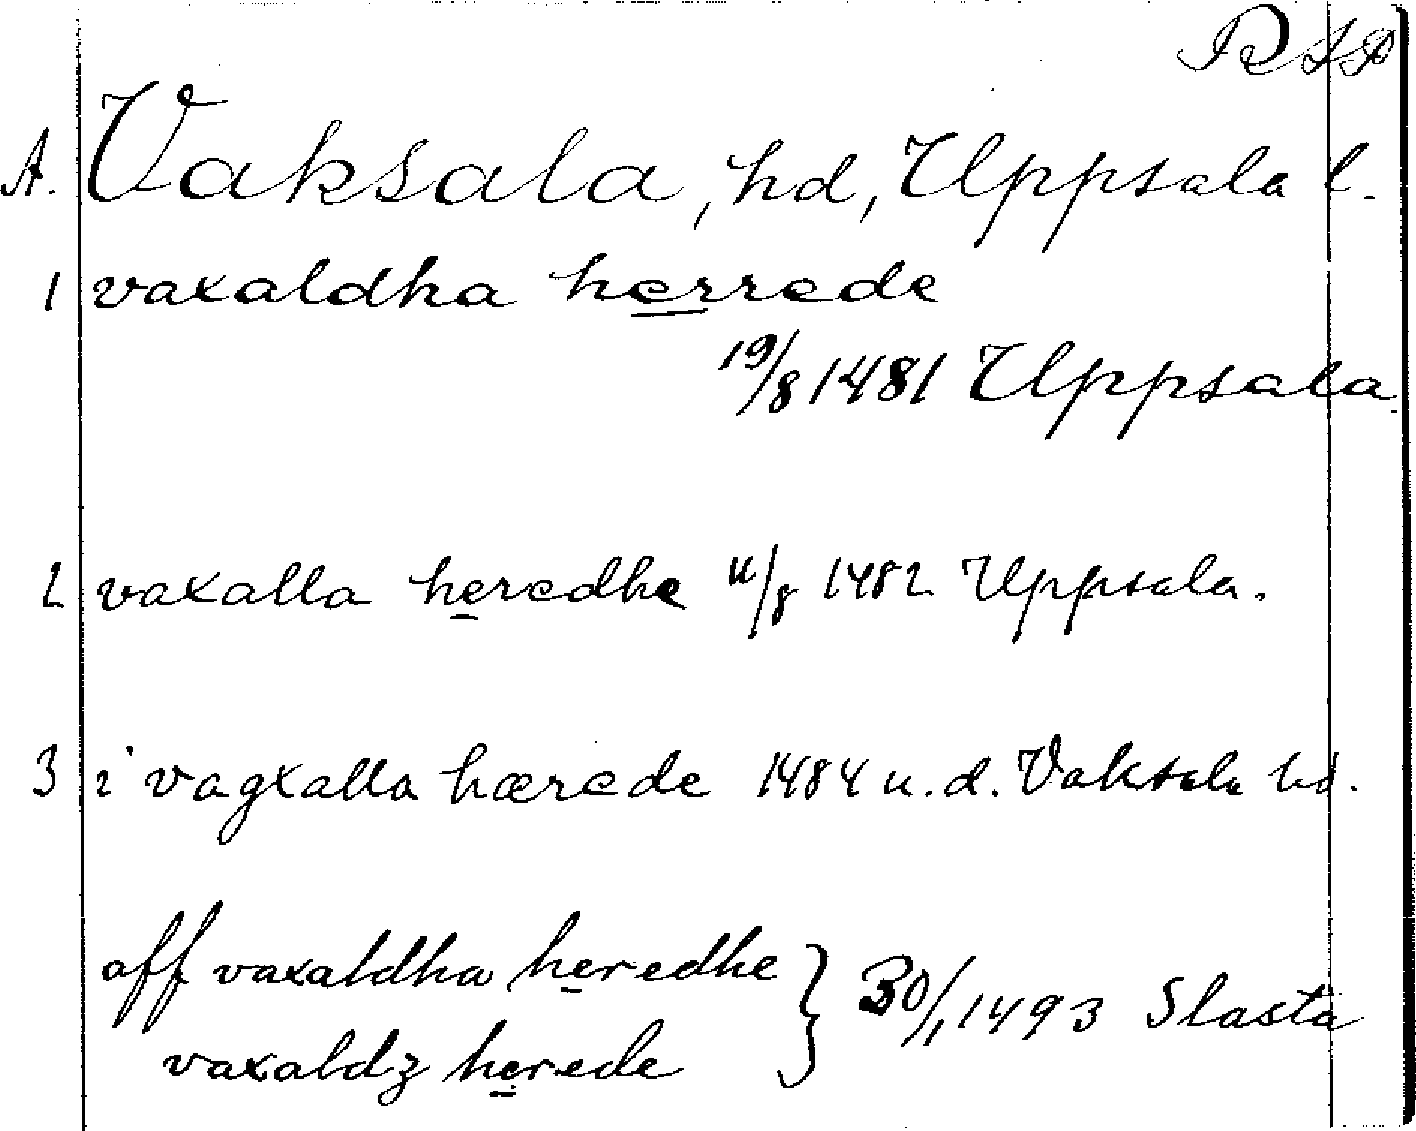 RAP
A. Vaksala, hd, Uppsala l.
1 vaxaldha herrede
19/8 1481 Uppsala.
2 vaxalla heredhe /8 1482 Uppsala.
3 i vagxalla hærede 1484 u.d. Vaksala hd.
aff vaxaldha heredhe
vaxaldz herede } 30/1 1493 Slasta